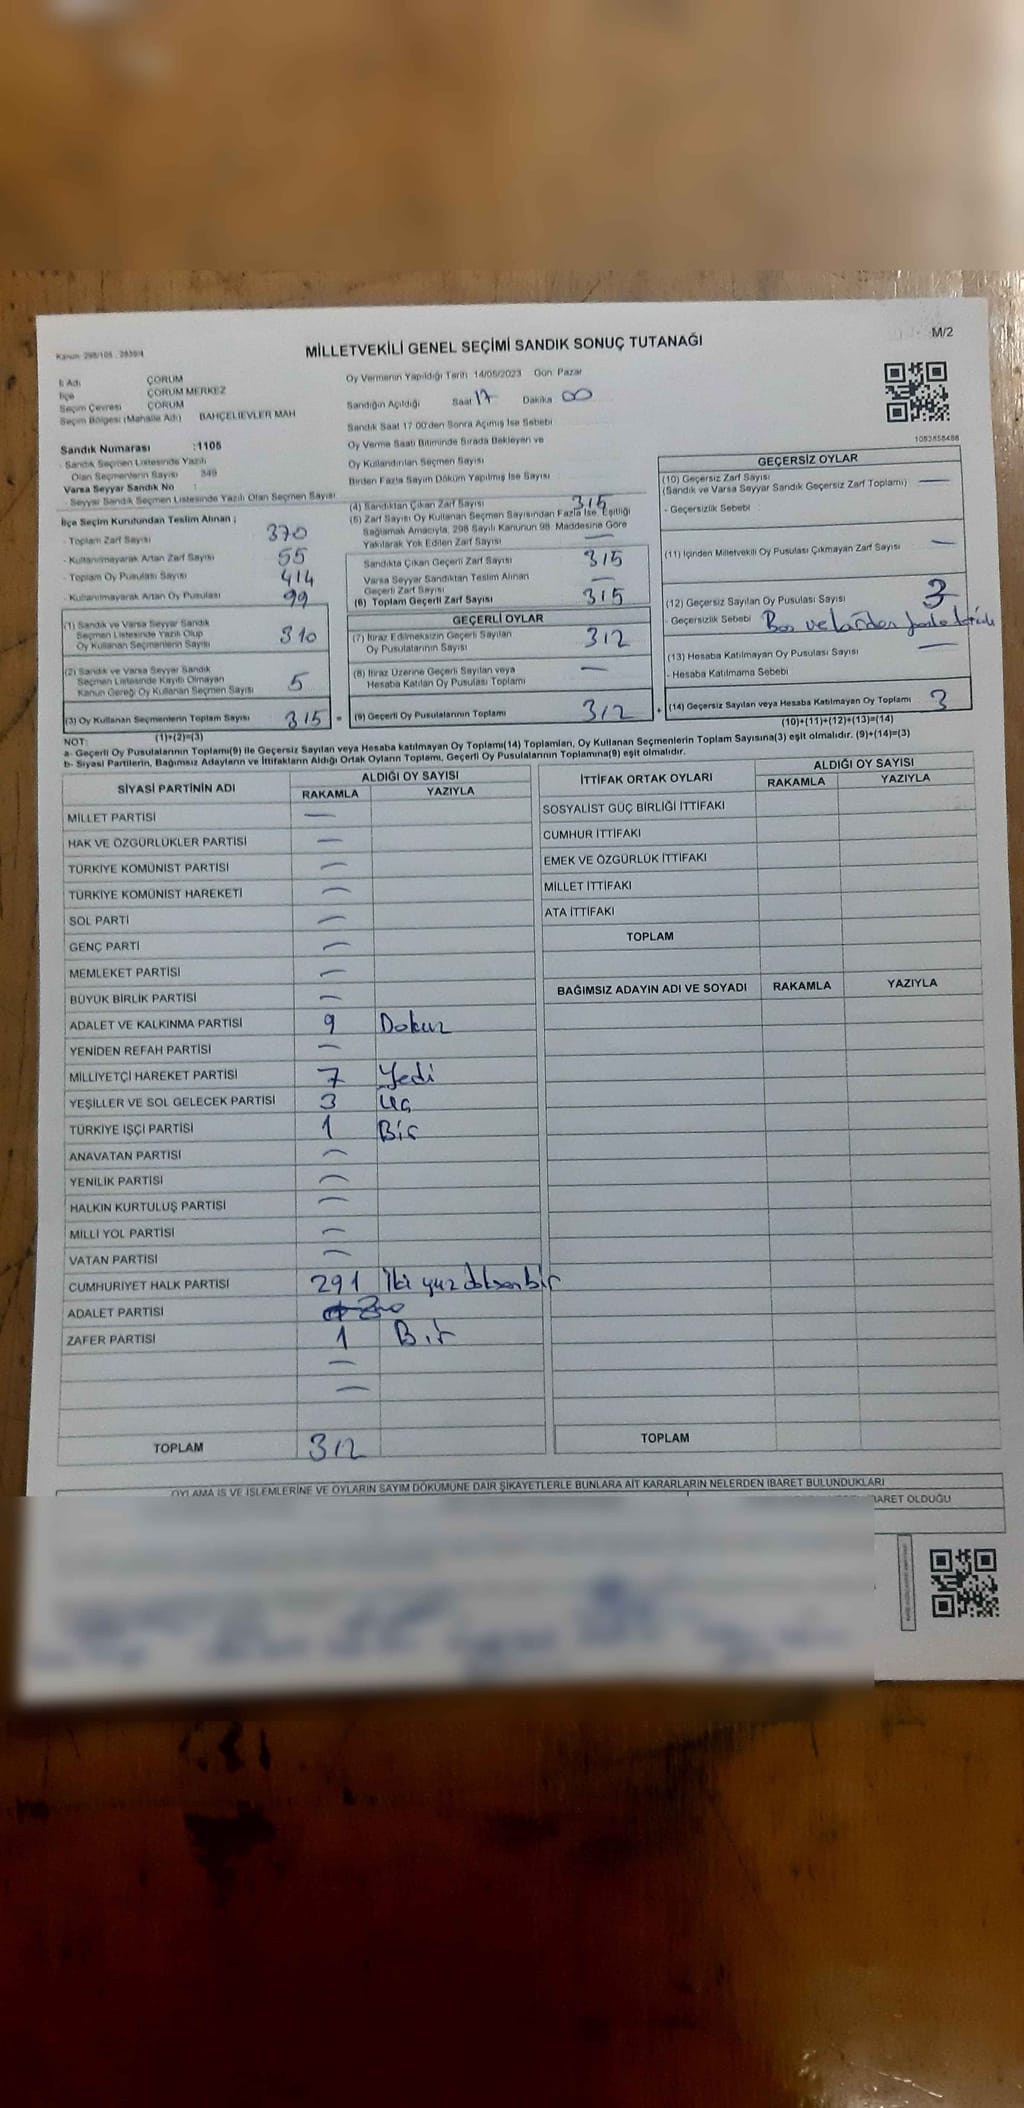 M/2
Kanun: 298/105 , 2839/4
MİLLETVEKİLİ GENEL SEÇİMİ SANDIK SONUÇ TUTANAĞI
İl Adı ÇORUM
İlçe ÇORUM MERKEZ
Seçim Çevresi ÇORUM
Seçim Bölgesi (Mahalle Adı) BAHÇELİEVLER MAH
Sandık Numarası :1105
- Sandık Seçmen Listesinde Yazılı
Olan Seçmenlerin Sayısı 349
Varsa Seyyar Sandık No :
- Seyyar Sandık Seçmen Listesinde Yazılı Olan Seçmen Sayısı
İlçe Seçim Kurulundan Teslim Alınan ;
- Toplam Zarf Sayısı 370
- Kullanılmayarak Artan Zarf Sayısı 55
- Toplam Oy Pusulası Sayısı 414
- Kullanılmayarak Artan Oy Pusulası 99
(1) Sandık ve Varsa Seyyar Sandık
Seçmen Listesinde Yazılı Olup
Oy Kullanan Seçmenlerin Sayısı 310
(2) Sandık ve Varsa Seyyar Sandık
Seçmen Listesinde Kayıtlı Olmayan
Kanun Gereği Oy Kullanan Seçmen Sayısı 5
(3) Oy Kullanan Seçmenlerin Toplam Sayısı 315 =
(1)+(2)=(3)
Oy Vermenin Yapıldığı Tarih 14/05/2023 Gün: Pazar
Sandığın Açıldığı Saat 17 Dakika 00
Sandık Saat 17:00'den Sonra Açımış İse Sebebi
Oy Verme Saati Bitiminde Sırada Bekleyen ve
Oy Kullandırılan Seçmen Sayısı
Birden Fazla Sayım Döküm Yapılmış İse Sayısı
(4) Sandıktan Çıkan Zarf Sayısı 315
(5) Zarf Sayısı Oy Kullanan Seçmen Sayısından Fazla İse, Eşitliği
Sağlamak Amacıyla, 298 Sayılı Kanunun 98. Maddesine Göre
Yakılarak Yok Edilen Zarf Sayısı —
Sandıkta Çıkan Geçerli Zarf Sayısı 315
Varsa Seyyar Sandıktan Teslim Alınan
Geçerli Zarf Sayısı —
(6) Toplam Geçerli Zarf Sayısı 315
GEÇERLİ OYLAR
(7) İtiraz Edilmeksizin Geçerli Sayılan
Oy Pusulalarının Sayısı 312
(8) İtiraz Üzerine Geçerli Sayılan veya
Hesaba Katılan Oy Pusulası Toplamı —
(9) Geçerli Oy Pusulalarının Toplamı 312 +
1083858488
GEÇERSİZ OYLAR
(10) Geçersiz Zarf Sayısı
(Sandık ve Varsa Seyyar Sandık Geçersiz Zarf Toplamı) —
- Geçersizlik Sebebi :
(11) İçinden Milletvekili Oy Pusulası Çıkmayan Zarf Sayısı —
(12) Geçersiz Sayılan Oy Pusulası Sayısı 3
- Geçersizlik Sebebi
(13) Hesaba Katılmayan Oy Pusulası Sayısı —
- Hesaba Katılmama Sebebi
(14) Geçersiz Sayılan veya Hesaba Katılmayan Oy Toplamı 3
(10)+(11)+(12)+(13)=(14)
NOT:
a- Geçerli Oy Pusulalarının Toplamı(9) ile Geçersiz Sayılan veya Hesaba katılmayan Oy Toplamı(14) Toplamları, Oy Kullanan Seçmenlerin Toplam Sayısına(3) eşit olmalıdır. (9)+(14)=(3)
b- Siyasi Partilerin, Bağımsız Adayların ve İttifakların Aldığı Ortak Oyların Toplamı, Geçerli Oy Pusulalarının Toplamına(9) eşit olmalıdır.
SİYASİ PARTİNİN ADI ALDIĞI OY SAYISI
RAKAMLA YAZIYLA
MİLLET PARTİSİ —
HAK VE ÖZGÜRLÜKLER PARTİSİ —
TÜRKİYE KOMÜNİST PARTİSİ —
TÜRKİYE KOMÜNİST HAREKETİ —
SOL PARTİ —
GENÇ PARTİ —
MEMLEKET PARTİSİ —
BÜYÜK BİRLİK PARTİSİ —
ADALET VE KALKINMA PARTİSİ 9 Dokuz
YENİDEN REFAH PARTİSİ —
MİLLİYETÇİ HAREKET PARTİSİ 7 Yedi
YEŞİLLER VE SOL GELECEK PARTİSİ 3 Üç
TÜRKİYE İŞÇİ PARTİSİ 1 Bir
ANAVATAN PARTİSİ —
YENİLİK PARTİSİ —
HALKIN KURTULUŞ PARTİSİ —
MİLLİ YOL PARTİSİ —
VATAN PARTİSİ —
CUMHURİYET HALK PARTİSİ 291 İki yüz doksan bir
ADALET PARTİSİ
ZAFER PARTİSİ 1 Bir
—
—
TOPLAM 312
İTTİFAK ORTAK OYLARI ALDIĞI OY SAYISI
RAKAMLA YAZIYLA
SOSYALİST GÜÇ BİRLİĞİ İTTİFAKI
CUMHUR İTTİFAKI
EMEK VE ÖZGÜRLÜK İTTİFAKI
MİLLET İTTİFAKI
ATA İTTİFAKI
TOPLAM
BAĞIMSIZ ADAYIN ADI VE SOYADI RAKAMLA YAZIYLA
TOPLAM
OYLAMA İŞ VE İŞLEMLERİNE VE OYLARIN SAYIM DÖKÜMÜNE DAİR ŞİKAYETLERLE BUNLARA AİT KARARLARIN NELERDEN İBARET BULUNDUKLARI
İBARET OLDUĞU